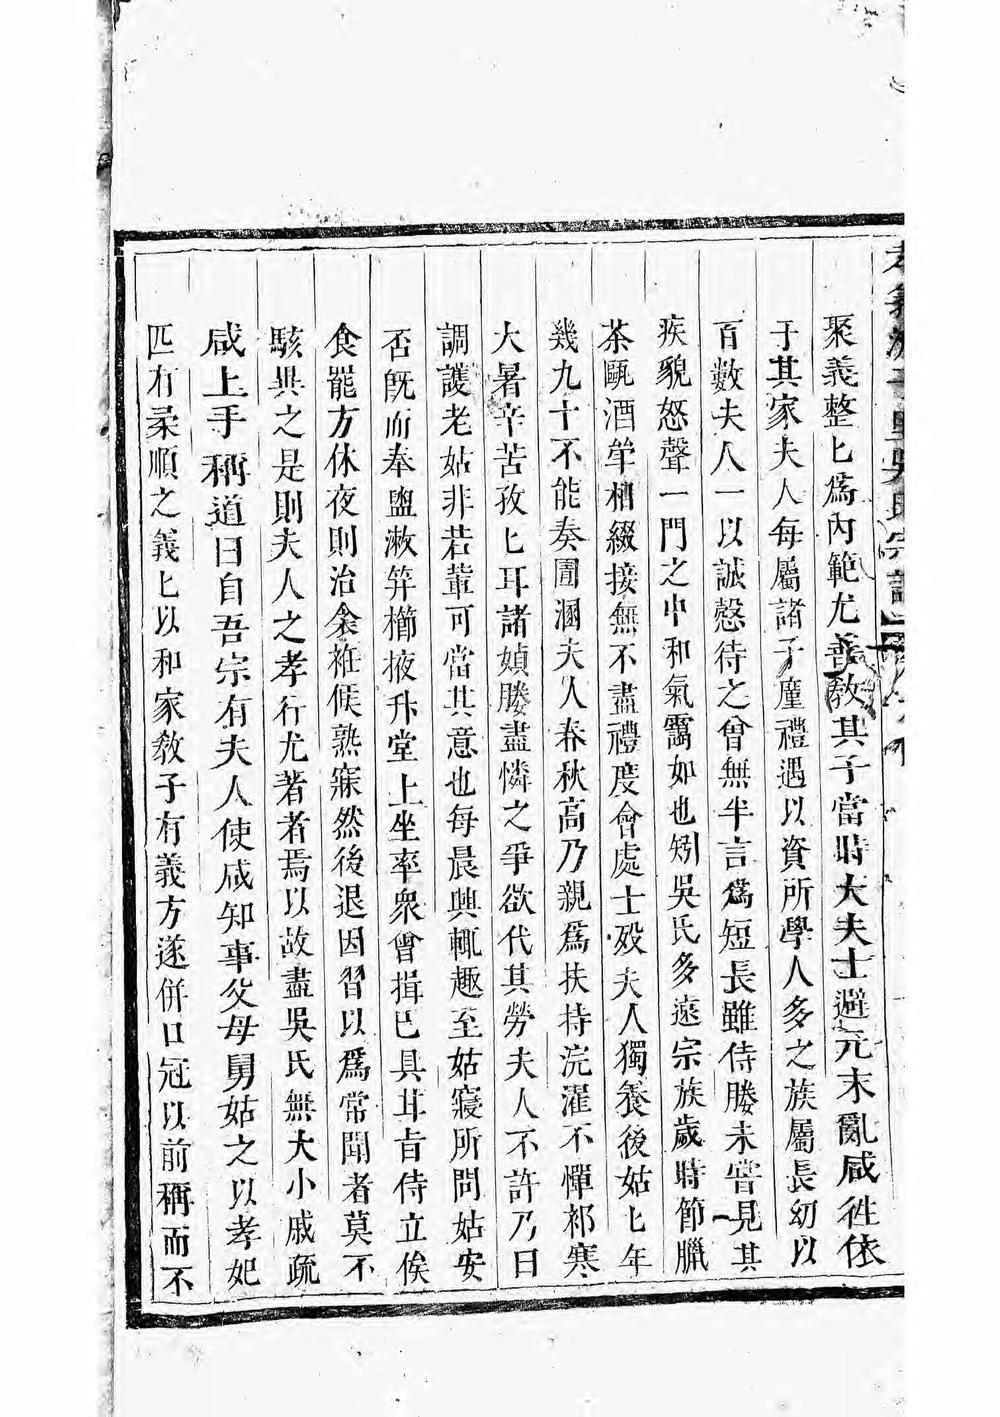 聚義整匕爲內範尤善教其子當時大夫士避元末亂咸徃依
于其家夫人每屬諸子廑禮遇以資所學人多之族屬長幼以
百數夫人一以誠慤待之曾無半言爲短長雖侍媵未嘗見其
疾貌怒聲一門之中和氣靄如也矧吳氏多遠宗族歲時節臘
茶甌酒斚相綴接無不盡禮度會處士歿夫人獨養後姑七年
幾九十不能奏圊溷夫人春秋高乃親爲扶持浣濯不憚祁寒
大暑辛苦孜匕耳諸媜媵盡憐之爭欲代其勞夫人不許乃曰
調護老姑非若輩可當其意也每晨興輒趣至姑寢所問姑安
否旣而奉盥漱笄櫛掖升堂上坐率衆曾揖已具甘旨侍立俟
食罷方休夜則治衾袵候熟寐然後退因習以爲常聞者莫不
駭異之是則夫人之孝行尤著者焉以故盡吳氏無大小戚疏
咸上手稱道曰自吾宗有夫人使咸知事父母舅姑之以孝妃
匹有柔順之義匕以和家敎子有義方遂併口冠以前稱而不